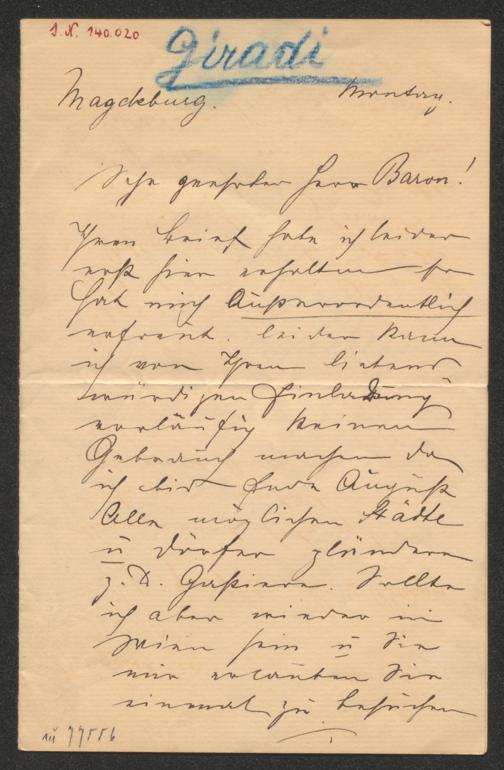 I. N. 140.020
Giradi
Magdeburg. Montag.
Sehr geehrter Herr Baron!
Ihren Brief habe ich leider
erst hier erhalten er
hat mich Außerordentlich
erfreut. leider kann
ich von Ihrer liebens
würdigen Einladung
vorläufig keinen
Gebrauch machen da
ich bis Ende August
Alle möglichen Städte
u Dörfer plündere
z. D. Gastiere. Sollte
ich aber wieder in
Wien sein u Sie
mir erlauben Sie
einmal zu besuchen
77556